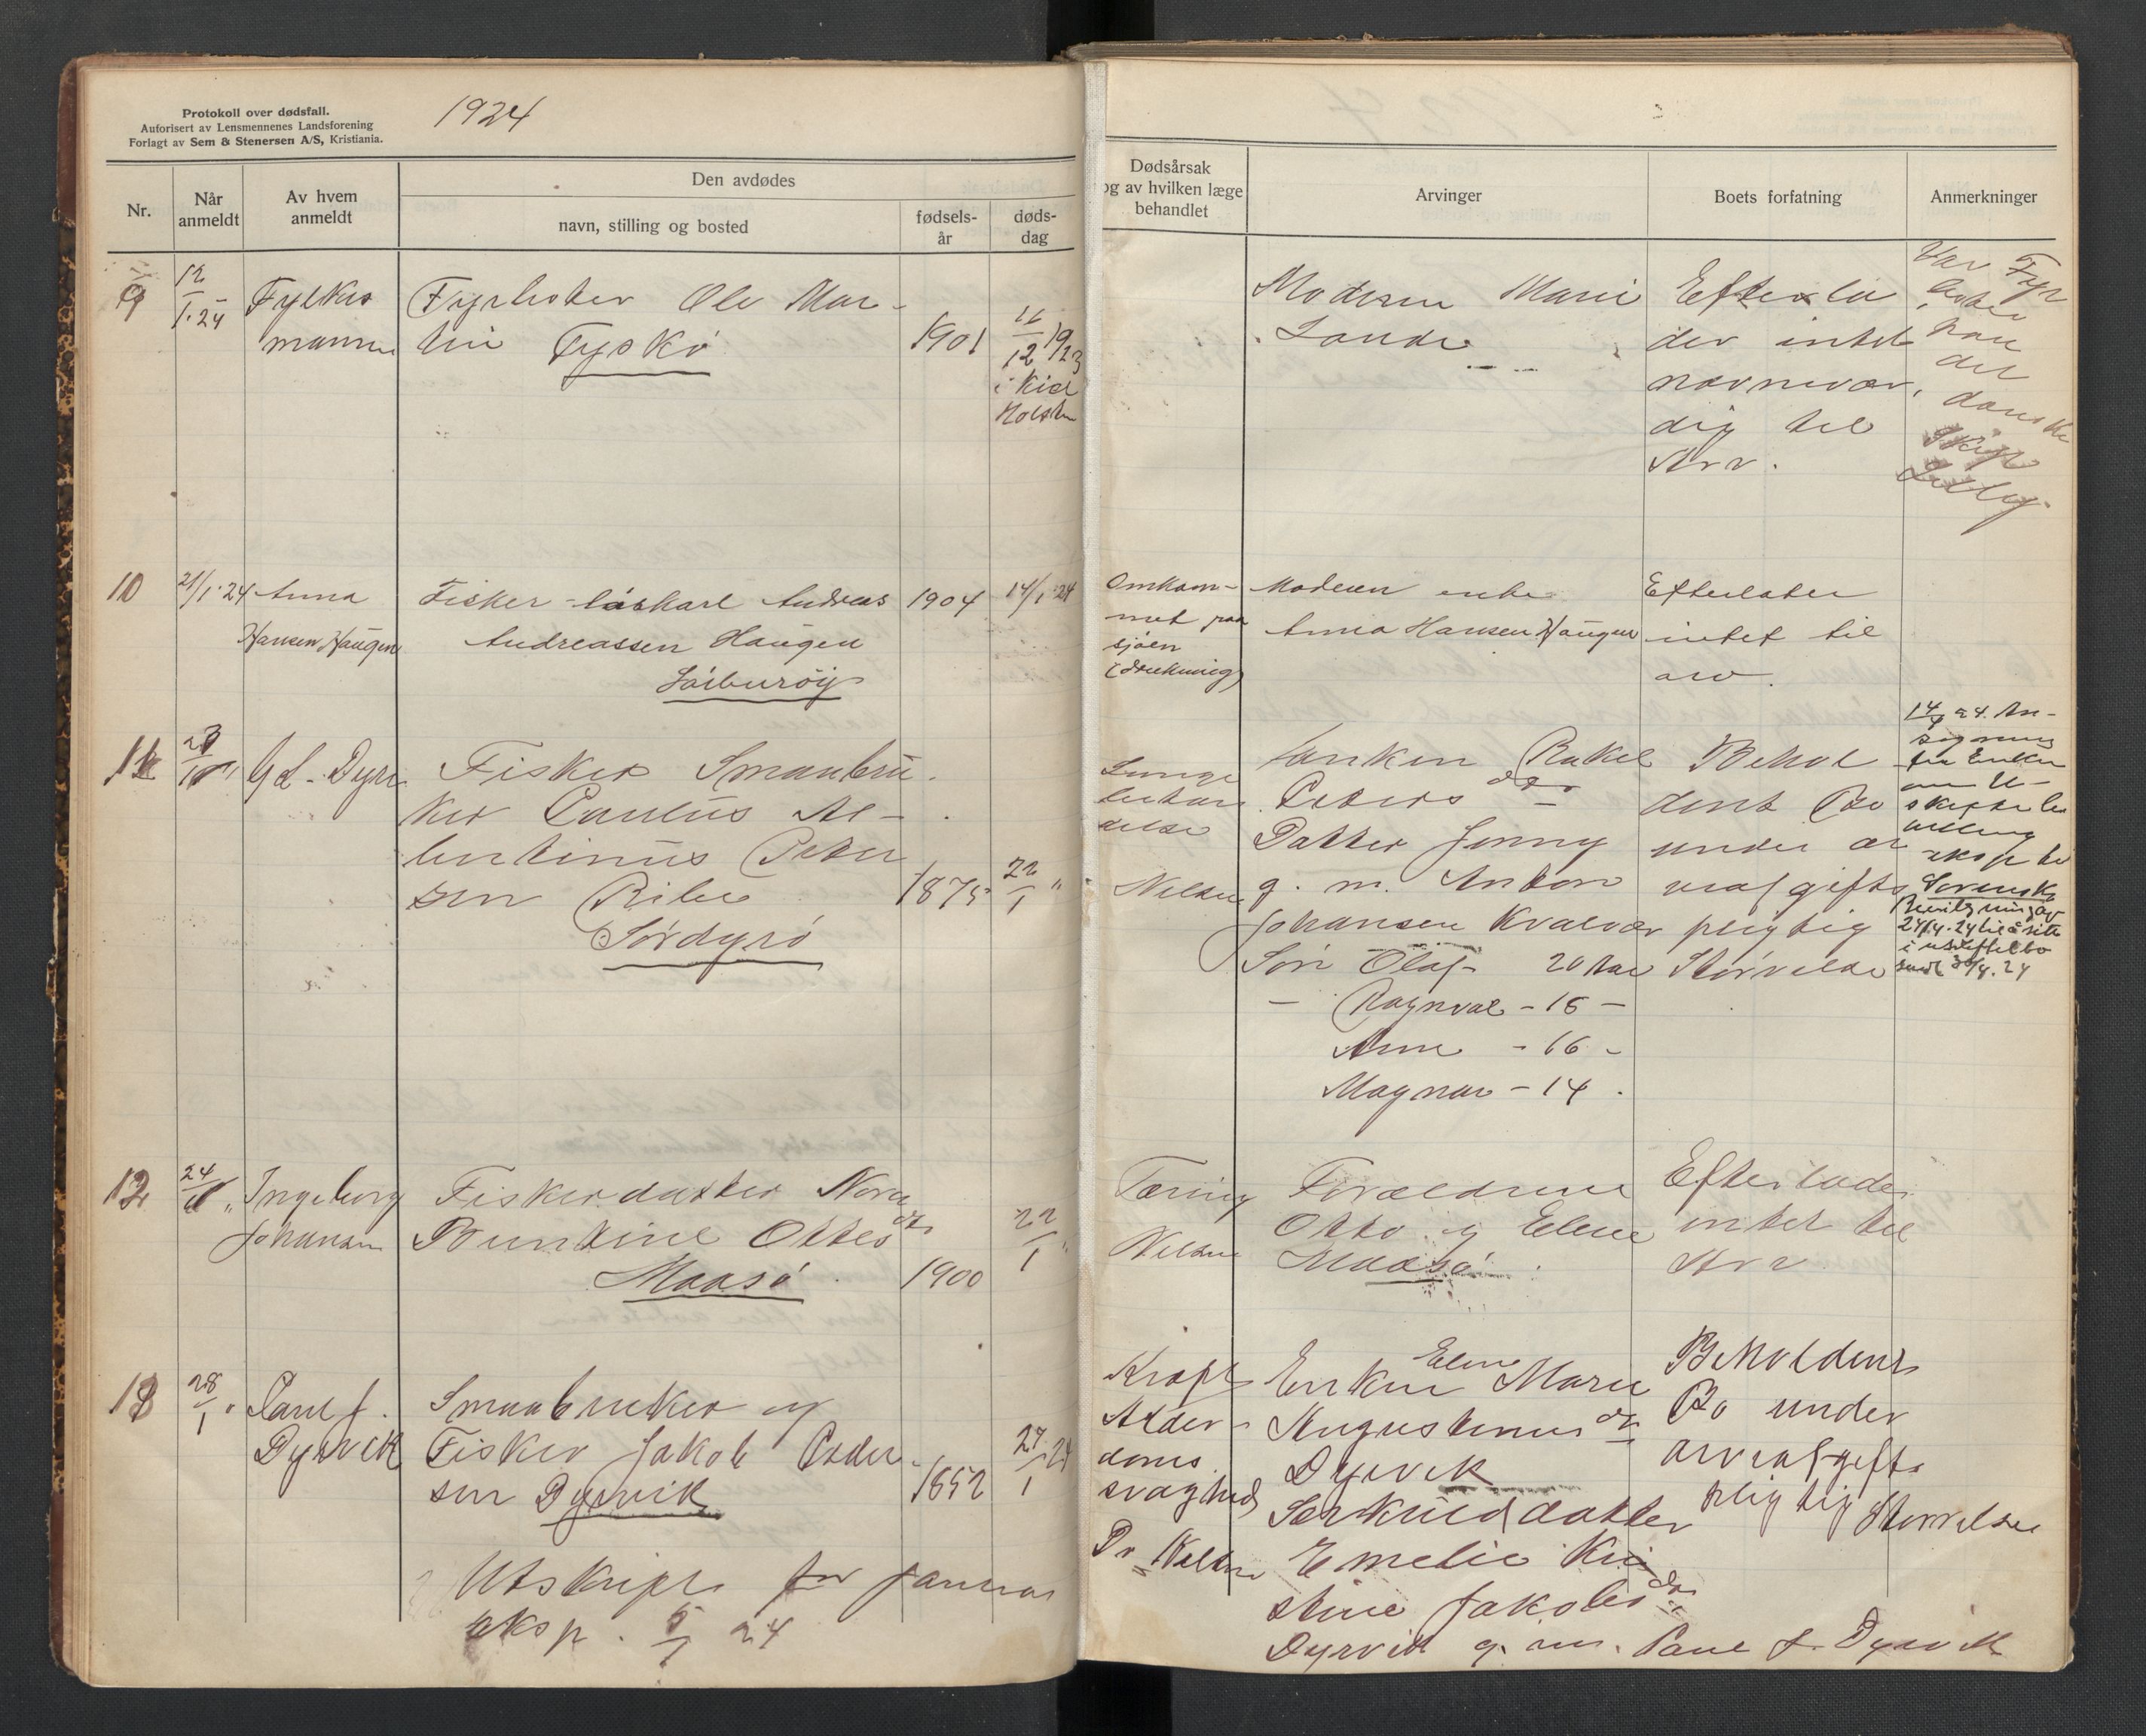 Protokoll over dødsfall.
Autorisert av Lensmennenes Landsforening
Forlagt av Sem & Stenersen A/S, Kristiania.
1924
Nr.
Når
anmeldt
Av hvem
anmeldt
Den avdødes
navn, stilling og bosted
fødsels-
år
døds-
dag
Dødsårsak
og av hvilken læge
behandlet
Arvinger
Boets forfatning
Anmerkninger
9
12/1.24
Fylkes
mannen
Fyrbøter Ole Mar-
tin Fyskø
1901
11/12 1923
i Kiel
Holsten
Moderen Marie
Lande
Efterla
der intet
nævnevær
dig til
Arv.
Var Fyr
bøter
paa
det
danske
Skip
10
21/1.24
Anna
Hansen Haugen
Fisker - løskarl Andreas
Andreassen Haugen
1904
14/1.24
Omkom-
met paa
sjøen
(drukning)
Moderen enke
Anna Hansen Haugen
Efterlater
intet til
arv.
11
G. L. Dyrø
Fisker Smaabru-
ker Paulus Al-
bertinus Peter
sen Ribe
Sørdyrø
1875
22/1 "
Lunge
betæn
delse
Nilsen
Enken Rakel
Peters dtr
Datter Jenny
g. m. Anton
Johansen Kvalvær
Søn Olaf 20 aar
— Ragnval - 18 —
Arne - 16 -
Magnar - 14 .
Behol
dent Bo
under ar
veafgifts
pligtig
Størrelse
14/4 24. An-
søgning
fra Enken
om U-
skiftebe
villing
eksp. til
Sorensk.
Bevilgning av
24/4.24 til å sitte
i uskiftet bo
sendt 30/4.24
12
24/1 "
Ingeborg
Johansen
Fiskerdatter Nora
Buntine Ottes dtr
Maasø
1900
22/1 "
Tæring
Nilsen
Forældrene
Otto og Elene
Maasø
Efterlader
intet til
Arv
13
28/1 "
Paul J.
Dyrvik
Smaabruker og
Fisker Jakob Peder-
sen Dyrvik
1852
27/1 24
Kræft
Alder-
doms
svaghed
Dr Nilsen
Enken Eline Marie
Augustinus dtr
Dyrvik
Særkuldatter
Emelie Kri
stine Jakobs dtr
Dyrvik g. m. Paul J. Dyrvik
Beholdent
Bo under
arveafgifts
pligtig Størrelse
Utskript for Januar
eksp. 24